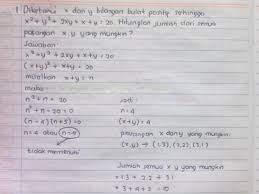 1. Diketahui x dan y bilangan bulat positip sehingga
x² + y² + 2xy + x + y = 20. Hitunglah jumlah dari semua
pasangan x y yang mungkin?
Jawaban:
x² + y² + 2xy + x + y = 20
(x + y)² + x + y = 20
misalkan x + y = n
maka:
n² + n = 20
n² + n - 20 = 0
(n - 4)(n + 5) = 0
n = 4 atau
tidak memenuhi
Jadi:
n = 4
x + y = 4
pasangan x dan y yang mungkin
(x, y) → (1,3), (2,2), (3,1)
Jumlah semua x y yang mungkin
= 1·3 + 2·2 + 3·1
= 3 + 4 + 3